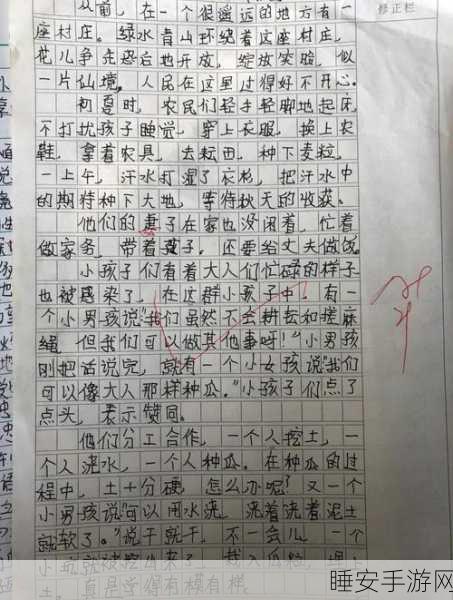 从前，在一个很遥远的地方有一
修正栏
座村庄。绿水青山环绕着这座村庄，
花儿争先恐后地开放，绽放笑脸，似
一片仙境。人民在这里过得好不开心。
初夏时，农民们轻手轻脚地起床，
不打扰孩子睡觉，穿上衣服，换上农
鞋，拿着农具，去耘田，种下麦粒，
一上午，汗水打湿了衣衫，把汗水中
的期待种下大地，等待秋天的收获。
他们的妻子在家也没闲着，忙着
做家务，带着孩子，还要给丈夫做饭。
小孩子们看着大人们忙碌的样子
也被感染了，在这群小孩子中，有一
个小男孩说“我们虽然不会耕耘和搓麻
绳，但我们可以做其他事呀！”小男孩
刚把话说完，就有一个小女孩说“我们
可以像大人那样种瓜。”小孩子们点了
点头，表示赞同。
他们分工合作，一个人挖土，一
个人浇水，一个人种瓜。在种瓜的过
程中，土十分硬，怎么办呢？又一个
小男孩说“可以用水浇，浇着浇着泥土
就软了。”说干就干，不一会儿，一个
小坑就被挖出来了，栽入瓜粒，埋上
土。真是学得有模有样
睡安手游网